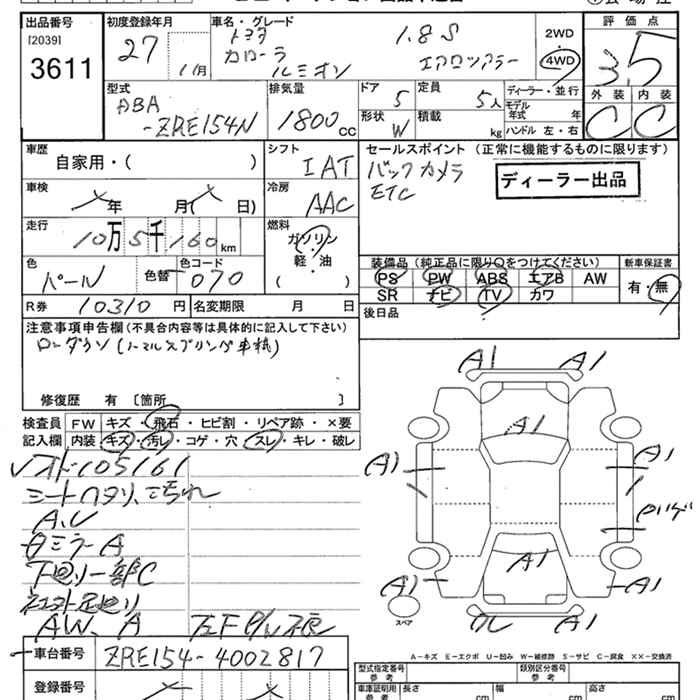 出品番号
[2039]
3611
初度登録年月
27
11月
車名・グレード
トヨタ
カローラ
ルミオン
1.8S
エアロツアラー
2WD
4WD
評価点
3.5
外装 内装
C C
型式
ABA
-ZRE154N
排気量
1800cc
ドア 5
定員 5人
形状 W
積載 kg
ディーラー・並行
モデル年式 年
ハンドル 左・右
車歴
自家用・( )
シフト
IAT
冷房
AAC
セールスポイント (正常に機能するものに限ります)
バックカメラ
ETC
ディーラー出品
車検
年 月( 日)
走行
10万5千160km
燃料
ガソリン・
軽・油
( )
色
パール
色替
色コード
070
装備品 (純正品に限り○をつけてください)
PS PW ABS エアB AW
SR ナビ TV カワ
新車保証書
有・無
R券 10310円
名変期限 月 日
後日品
注意事項申告欄(不具合内容等は具体的に記入して下さい)
ローダウン(ノーマルスプリング車積)
修復歴 有 〔箇所 〕
検査員
記入欄
FW キズ・飛石・ヒビ割・リペア跡・×要
内装 キズ・汚レ・コゲ・穴・スレ・キレ・破レ
105161
シートヘタリ、汚れ
A.U
ミラーA
下廻り一部C
AW、A
車台番号 ZRE154-4002817
登録番号
A1 A1
A1
A1 A1
A1
A1 A1
A1
スペア
A-キズ E-エクボ U-凹み W-補修跡 S-サビ C-腐食 XX-交換済
型式指定番号
参考
類別区分番号
参考
車庫証明用
参考
長さ cm
幅 cm
高さ cm